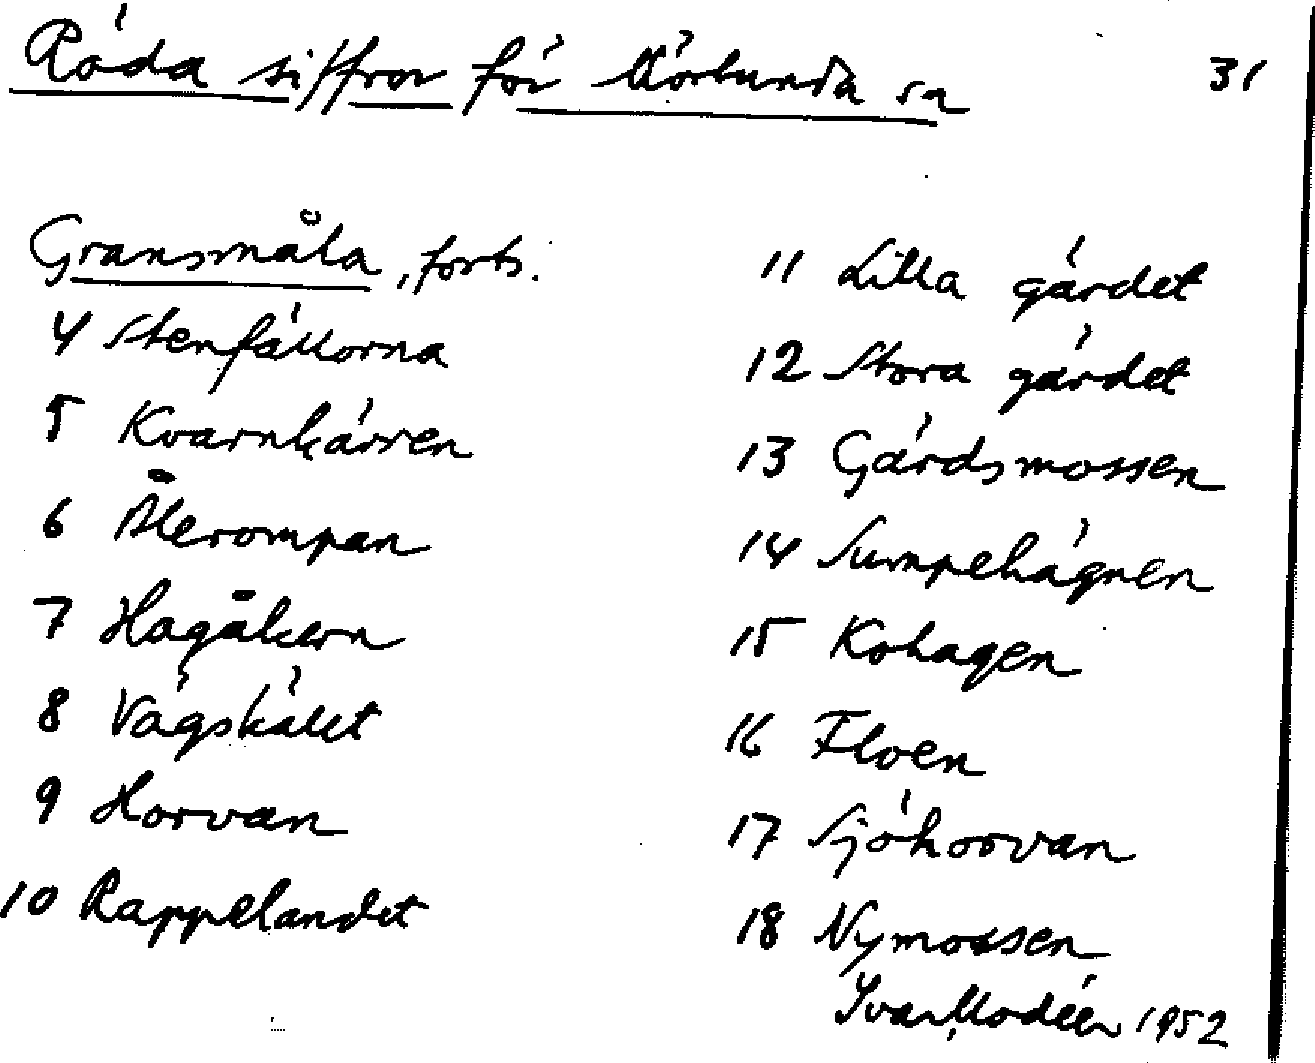 Röda siffror för Mörlunda sn 31
Gransmåla, forts.
4 Stenfällorna
5 Kvarnkärren
6 Ålerompan
7 Hagåkern
8 Vägskälet
9 Horvan
10 Rappelandet
11 Lilla gärdet
12 Stora gärdet
13 Gärdsmossen
14 Sumpehägnen
15 Kohagen
16 Floen
17 Sjöhorvan
18 Nymossen
Ivar Modéer 1952